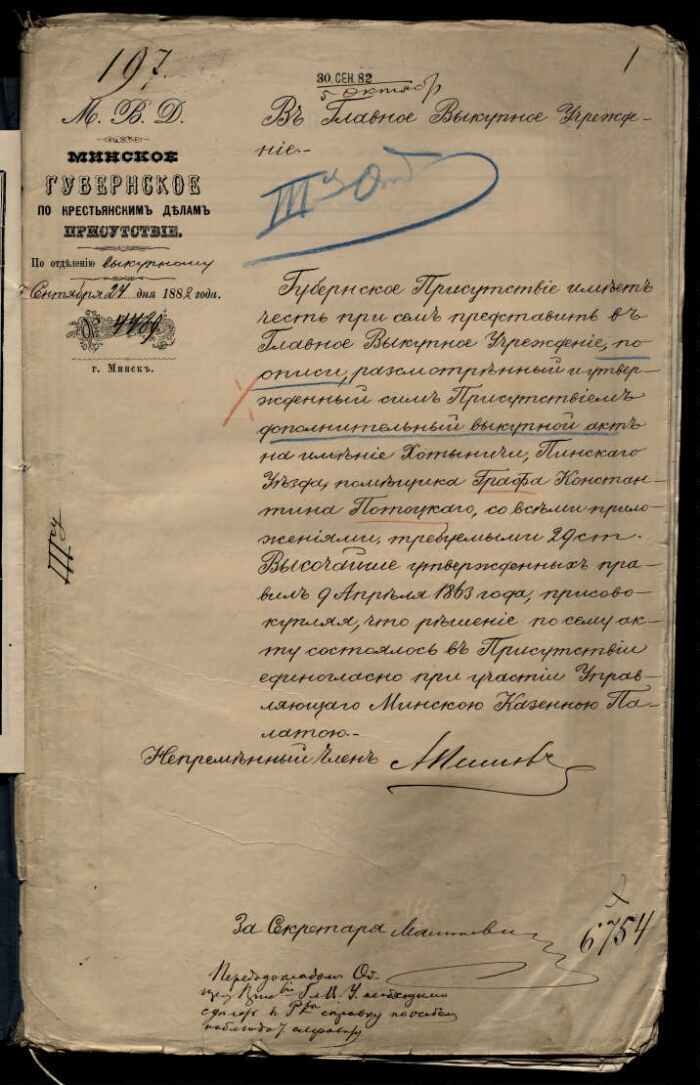 197.
30 СЕН. 82
5 октябр
1
М. В. Д.
МИНСКОЕ
ГУБЕРНСКОЕ
ПО КРЕСТЬЯНСКИМЪ ДѢЛАМЪ
ПРИСУТСТВІЕ.
По отдѣленію выкупному
Сентября 27 дня 1882 года.
№
г. Минскъ.
Въ Главное Выкупное Учрежде-
ніе.-
III
Губернское Присутствіе имѣетъ
честь при семъ представить въ
Главное Выкупное Учрежденіе, по
описи, разсмотрѣнный и утвер-
жденный симъ Присутствіемъ
дополнительный выкупной актъ
на имѣніе Хотыничи, Пинскаго
Уѣзда, помѣщика Графа Констан-
тина Потоцкаго, со всѣми прило-
женіями, требуемыми 29 ст.
Высочайше утвержденныхъ пра-
вилъ 9 Апрѣля 1863 года, присово-
купляя, что рѣшеніе по сему ак-
ту состоялось въ Присутствіи
единогласно при участіи Управ-
ляющаго Минскою Казенною Па-
латою.-
Непремѣнный Членъ
За Секретаря
6754
необходимо
справку